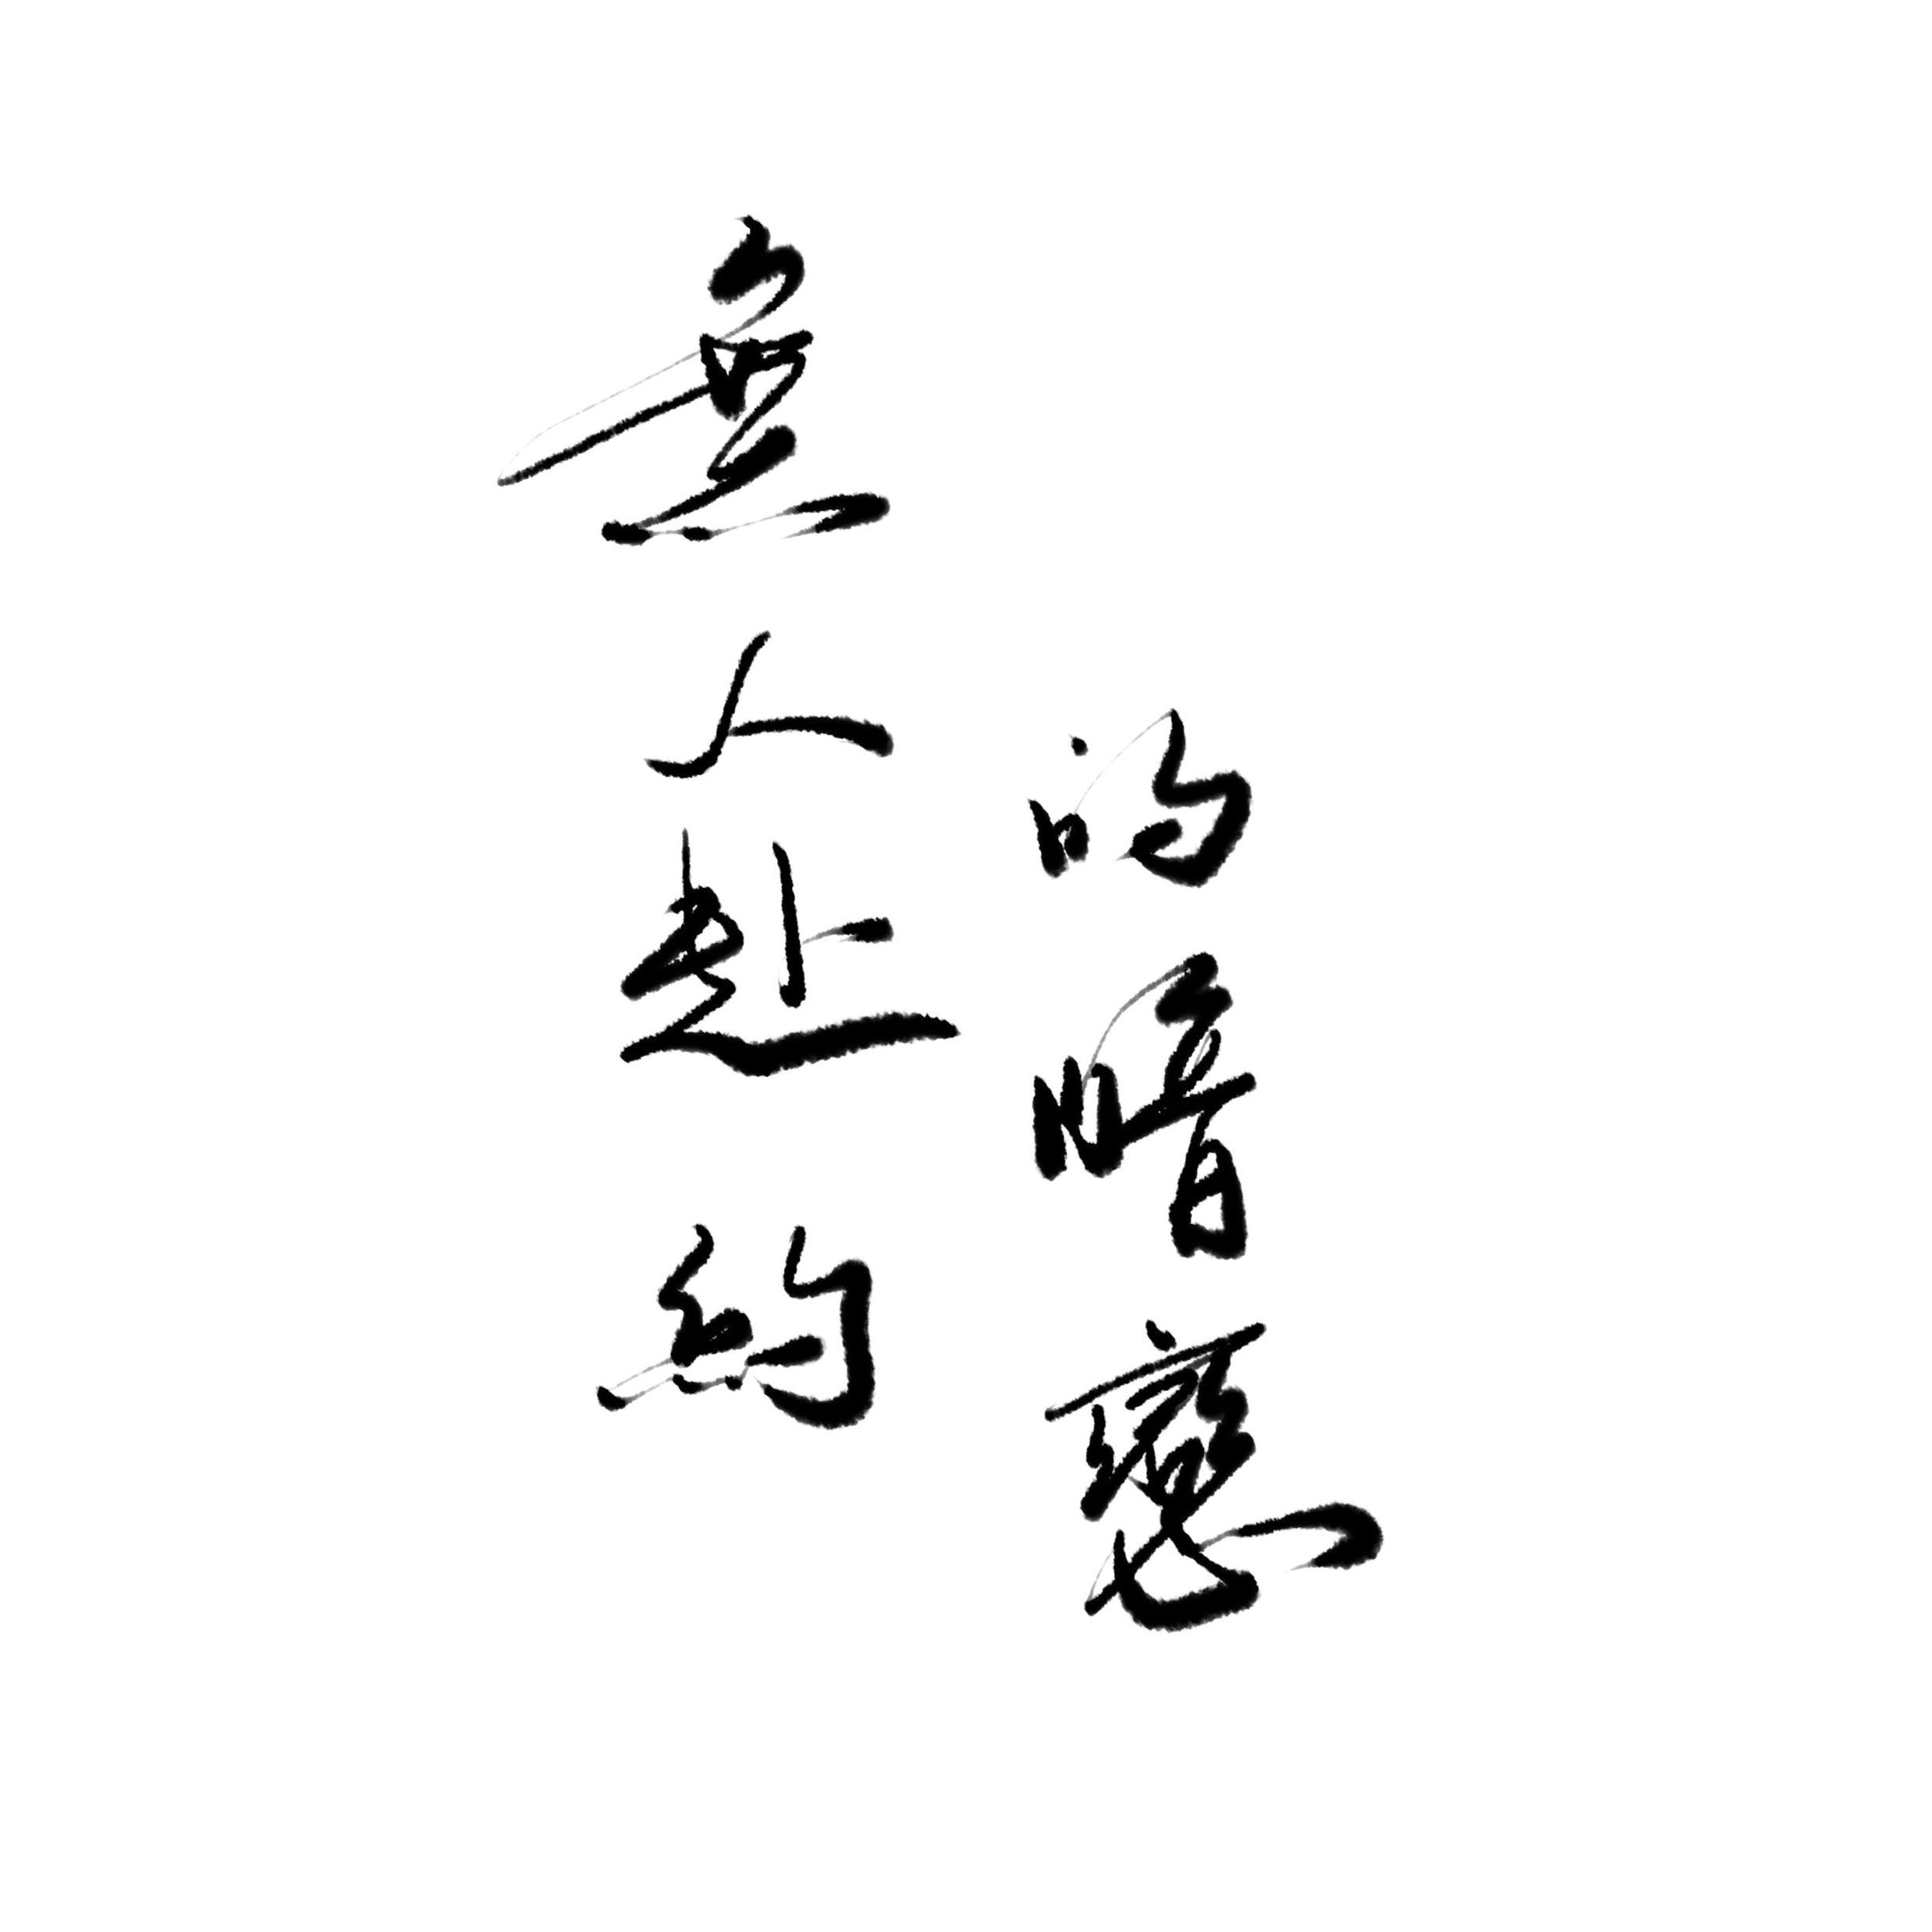 無人赴約
的暗戀